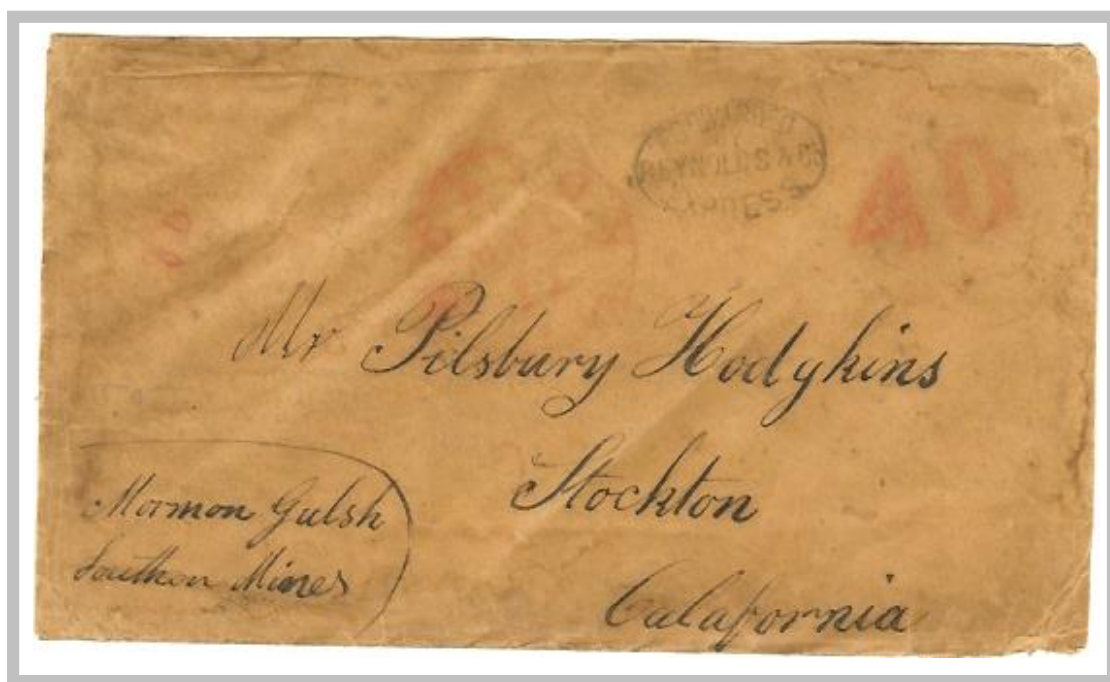 REYNOLDS & CO
EXPRESS
40
Mr Pilsbury Hodgkins
Stockton
Calafornia
Mormon Gulsh
Southern Mines